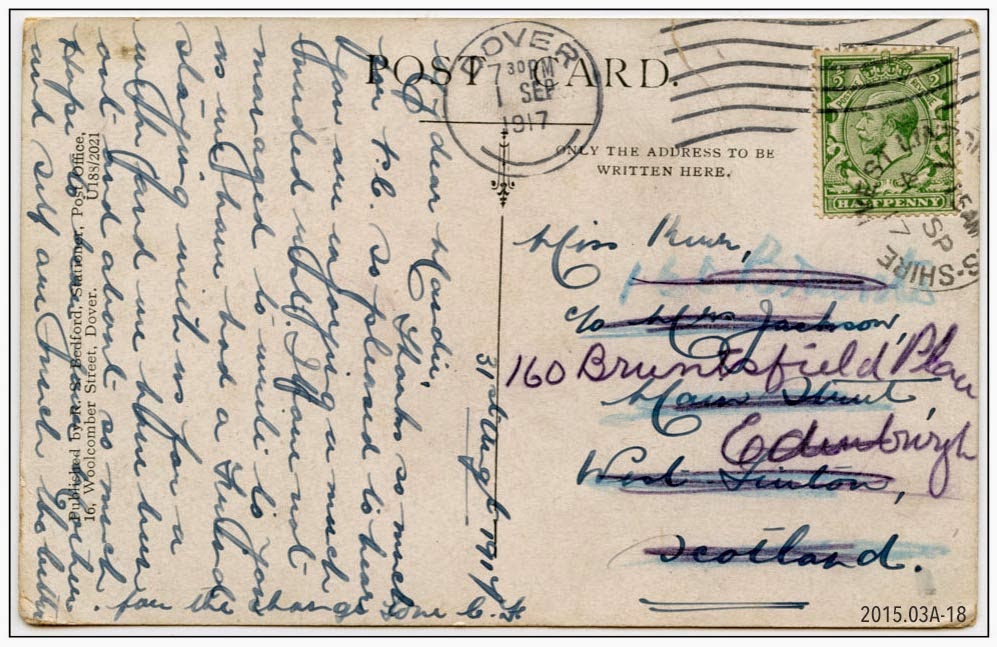 POST CARD.
DOVER
7 30 PM
1 SEP
1917
HALFPENNY
ONLY THE ADDRESS TO BE
WRITTEN HERE.
31st Augst 1917
My dear
Thanks so much
for P.C. So pleased to hear
you are enjoying so much
I have not
managed to write to you
as we have had a
staying with us for a
and we have been
out and about so much
Hope
and self am much the better
for the change Love
Published by R. S. Bedford, Stationer, Post Office,
16, Woolcomber Street, Dover. U188/2021
Miss
c/o Mrs Jackson,
160 Bruntsfield Place
Main Street,
Edinburgh
West Linton,
Scotland.
S-SHIRE
SP
17
2015.03A-18